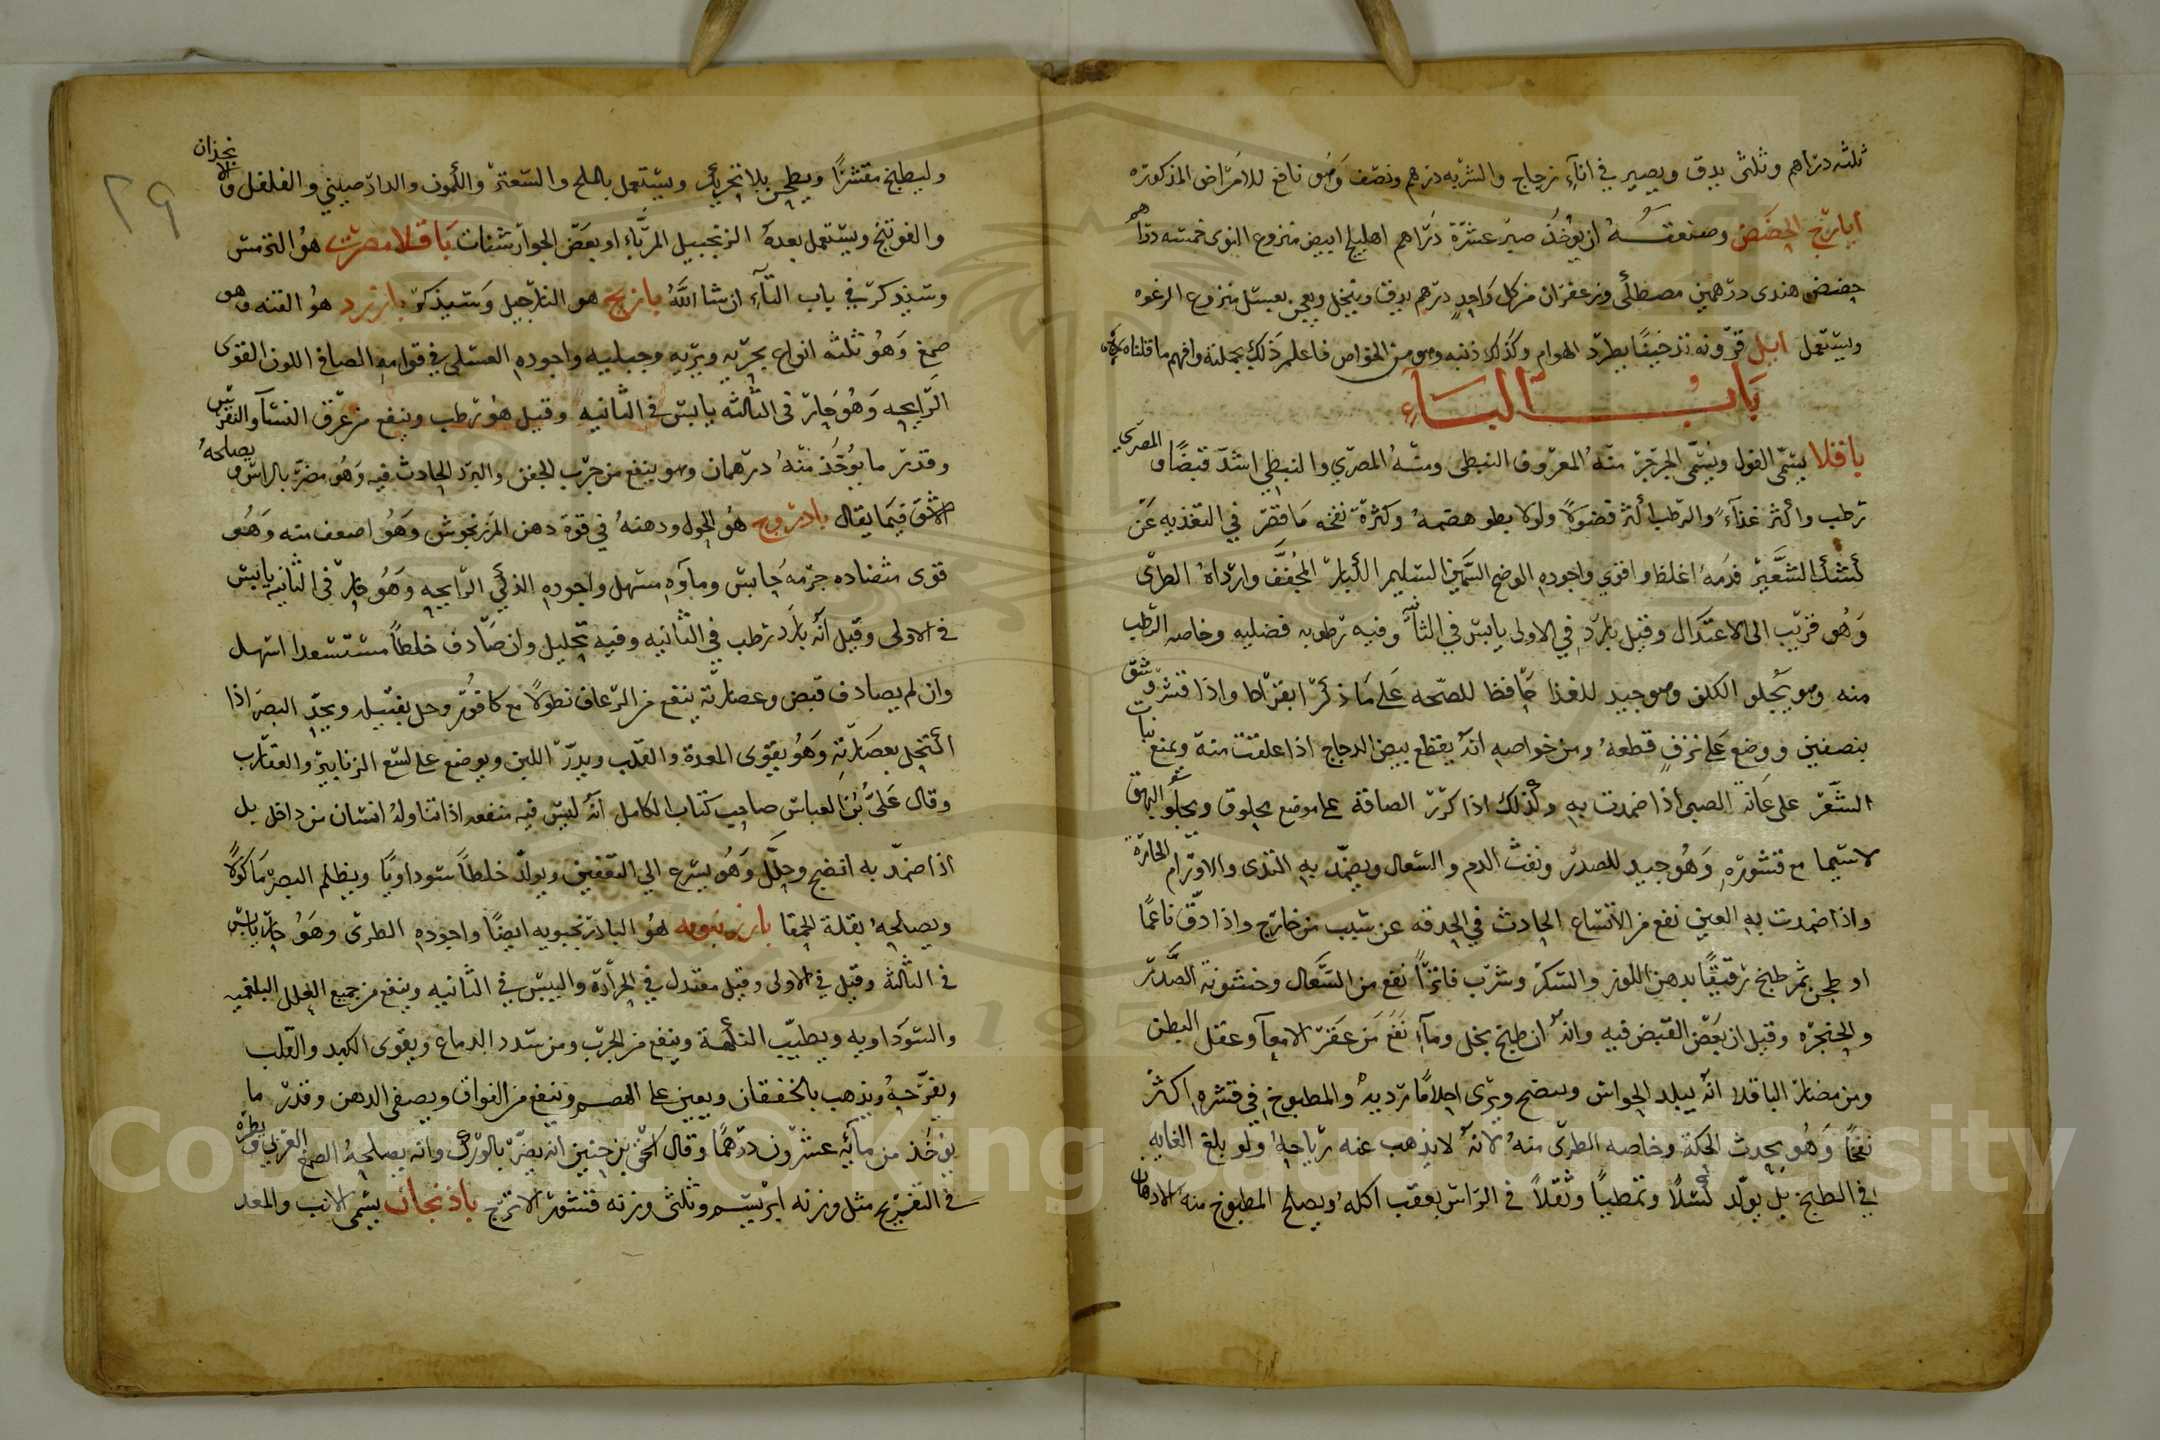 ثلثه دراهم وثلثى يدق ويصير في اناء زجاج والشربه درهم ونصف وهو نافع للامراض المذكوره
ايارج الحضض وصنعته ان يوخذ صبر عشرة دراهم اهليلج ابيض منزوع النوى خمسه دراهم
حضض هندى درهمين مصطكى وزعفران من كل واحد درهم يدق وينخل ويعجن بعسل منزوع الرغوه
ويستعمل ايل قرونه تدخينا يطرد الهوام وكذلك ذنبه وهو من الخواص فاعلم ذلك بجملته وافهم ما قلناه
باب الباء
باقلا يسمى الفول ويسمى الجرجر منه المعروف النبطى ومنه المصرى والنبطي اشد قبضا والمصرى
رطب واكثر غذاء والرطب اكثر فضولا ولولا بطو هضمه وكثرة نفخه ما قصر في التغذيه عن
كشك الشعير فدمه اغلظ واقوى واجوده الوضح السمين السليم الكبار المجفف وارداه الطرى
وهو قريب الى الاعتدال وقيل بارد في الاولى يابس في الثانيه وفيه رطوبه فضليه وخاصه الرطب
منه وهو يجلو الكلف وهو جيد للغذا حافظا للصحه على ما ذكر ابقراط واذا قشر وشق
بنصفين ووضع على نزف قطعه ومن خواصه انه يقطع بيض الدجاج اذا علفت منه ويمنع نبات
الشعر على عانة الصبى اذا ضمدت به وكذلك اذا كرر الصاقه على موضع محلوق ويجلو البهق
لاسيما مع قشوره وهو جيد للصدر ونفث الدم والسعال ويضمد به الثدى والاورام الحارة
واذا ضمدت به العين نفع من الاتساع الحادث في الحدقه عن سبب من خارج واذا دق ناعما
او طحن ثم طبخ رقيقا بدهن اللوز والسكر وشرب فاترا نفع من السعال وخشونة الصدر
والحنجره وقيل ان بعض القبض فيه وانه ان طبخ بخل وماء نفع من عقر الامعآ وعقل البطن
ومن مضار الباقلا انه يبلد الحواس ويرى احلاما رديه والمطبوخ في قشره اكثر
نفخا وهو يحدث الحكة وخاصه الطرى منه لانه لا يذهب عنه رياحه ولو بلغ الغايه
في الطبخ بل يولد كسلا وتمطيا وثقلا في الراس بعقب اكله ويصلح المطبوخ منه الادهان
٢٩
وليطبخ مقشرا ويطحن بلا تحريك ويستعمل بالملح والسعتر والكمون والدارصيني والفلفل والانجذان
والفوتنج ويستعمل بعده الزنجبيل المرباء او بعض الجوارشنات باقلا مصرى هو الترمس
وسنذكره في باب التآء ان شا الله بارنج هو النارجيل وسيذكر بارزد هو القنه وهى
صمغ وهو ثلثه انواع بحريه وبريه وجبليه واجوده العسلى في قوامه الصافى اللون القوى
الرايحه وهو حار فى الثالثه يابس فى الثانيه وقيل هو رطب وينفع من عرق النسآ والنقرس
وقدر ما يوخذ منه درهمان وهو ينفع من جرب الجفن والبرد الحادث فيه وهو مضر بالراس ويصلحه
الاشق فيما يقال بادروج هو الحوك ودهنه في قوة دهن المرزنجوش وهو اضعف منه وهو
قوى متضاده جرمه حابس وماوه مسهل واجوده الذكي الرايحه وهو حار فى الثانيه يابس
فى الاولى وقيل انه بارد رطب في الثانيه وفيه تحليل وان صادف خلطا مستعدا اسهل
وان لم يصادف قبض وعصارته ينفع من الرعاف نطولا مع كافور وخل بفتيله ويحد البصر اذا
اكتحل بعصارته وهو يقوى المعدة والقلب ويدر اللبن ويوضع على لسع الزنابير والعقارب
وقال على بن العباس صاحب كتاب الكامل انه ليس فيه منفعه اذا تناوله انسان من داخل بل
اذا ضمد به انضج وحلل وهو يسرع الى التعفين ويولد خلطا سوداويا ويظلم البصر ماكولا
ويصلحه بقلة الحمقا بادرنبويه هو البادرنجبويه ايضا واجوده الطرى وهو حار يابس
في الثالثه وقيل في الاولى وقيل معتدل في الحرارة واليبس في الثانيه وينفع من جميع العلل البلغميه
والسوداويه ويطيب النكهة وينفع من الجرب ومن سدد الدماغ ويقوى الكبد والقلب
ويفرحه ويذهب بالخفقان ويعين على الهضم وينفع من الفواق ويصفى الدهن وقدر ما
يوخذ من مآئه عشرون درهما وقال اسحق بن حنين انه يضر بالورك وانه يصلحه الصمغ العربى
فى التفريح مثل وزنه ابريسم وثلثى وزنه قشور الاترج باذنجان يسمى الانب والمعد
Copyright © King Saud University